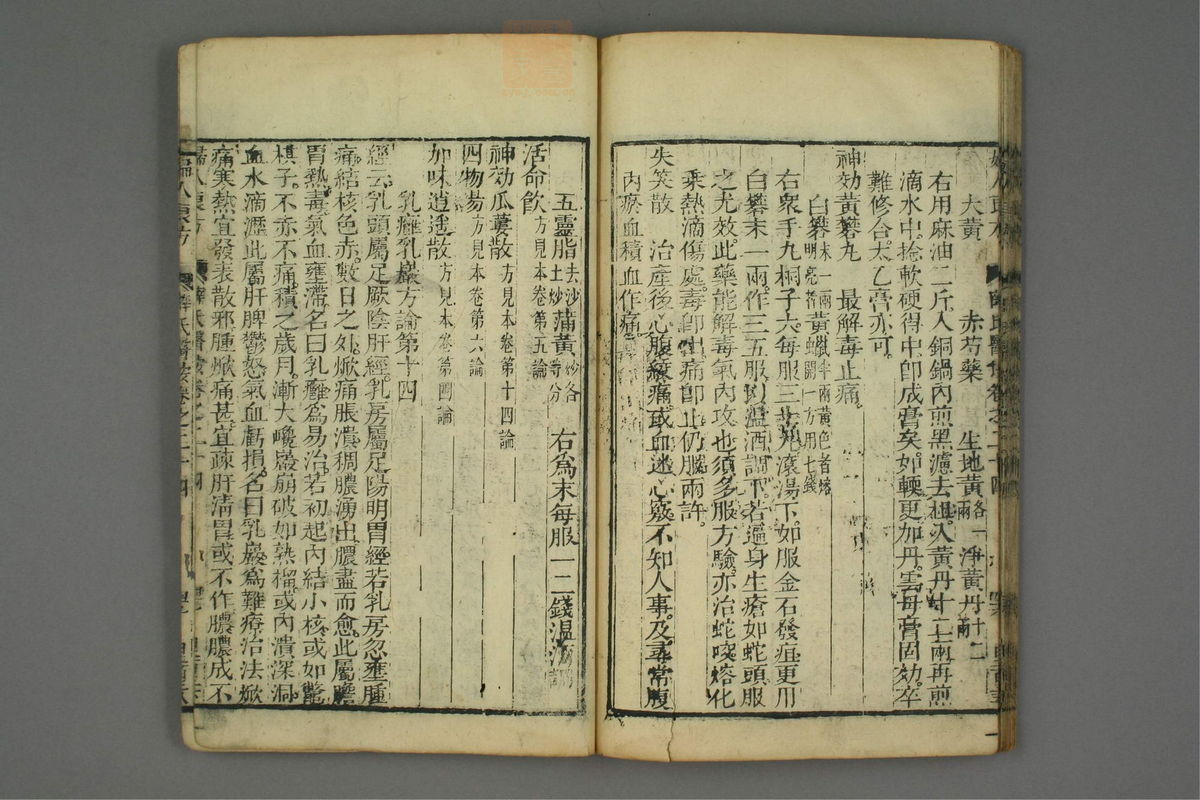 大黃 赤芍藥 生地黃各一兩 淨黃丹十二兩
右用麻油二斤入銅鍋內煎黑濾去柤入黃丹十二兩再煎
滴水中捻軟硬得中卽成膏矣如軟更加丹雲母膏固効卒
難修合太乙膏亦可
神効黃礬丸 最解毒止痛
白礬末一兩明亮者 黃蠟半兩黃色者熔開一方用七錢
右衆手丸桐子大每服三十丸滾湯下如服金石發疽更用
白礬末一兩作三五服以溫酒調下若遍身生瘡如蛇頭服
之尤效此藥能解毒氣內攻也須多服方驗亦治蛇咬熔化
乘熱滴傷處毒卽出痛卽止仍服兩許
失笑散 治產後心腹痛或血迷心竅不知人事及尋常腹
內瘀血積血作痛
五靈脂去沙土炒 蒲黃炒各等分 右爲末每服一二錢溫酒調
活命飲方見本卷第五論
神効瓜蔞散方見本卷第十四論
四物湯方見本卷第六論
加味逍遥散方見本卷第四論
乳癰乳巖方論第十四
經云乳頭屬足厥陰肝經乳房屬足陽明胃經若乳房忽壅腫
痛結核色赤數日之外焮痛脹潰稠膿湧出膿盡而愈此屬膽
胃熱毒氣血壅滯名曰乳癰爲易治若初起內結小核或如鱉
棋子不赤不痛積之歲月漸大巉巖崩破如熟榴或內潰深洞
血水滴瀝此屬肝脾鬱怒氣血虧損名曰乳巖爲難療治法焮
痛寒熱宜發表散邪腫焮痛甚宜疎肝清胃或不作膿膿成不